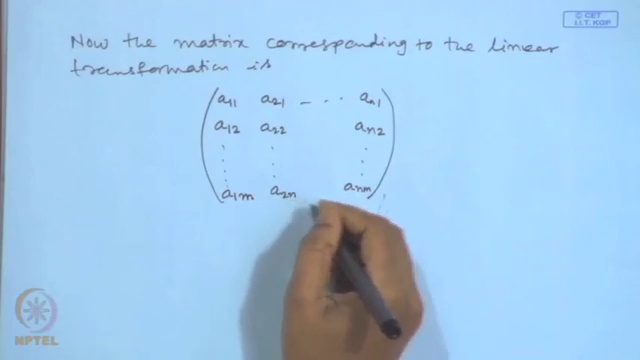 © CET
I.I.T. KGP
Now the matrix corresponding to the linear
transformation is
a11 a21 - ··· an1
a12 a22 an2
⋮ ⋮ ⋮
a1m a2n anm
NPTEL